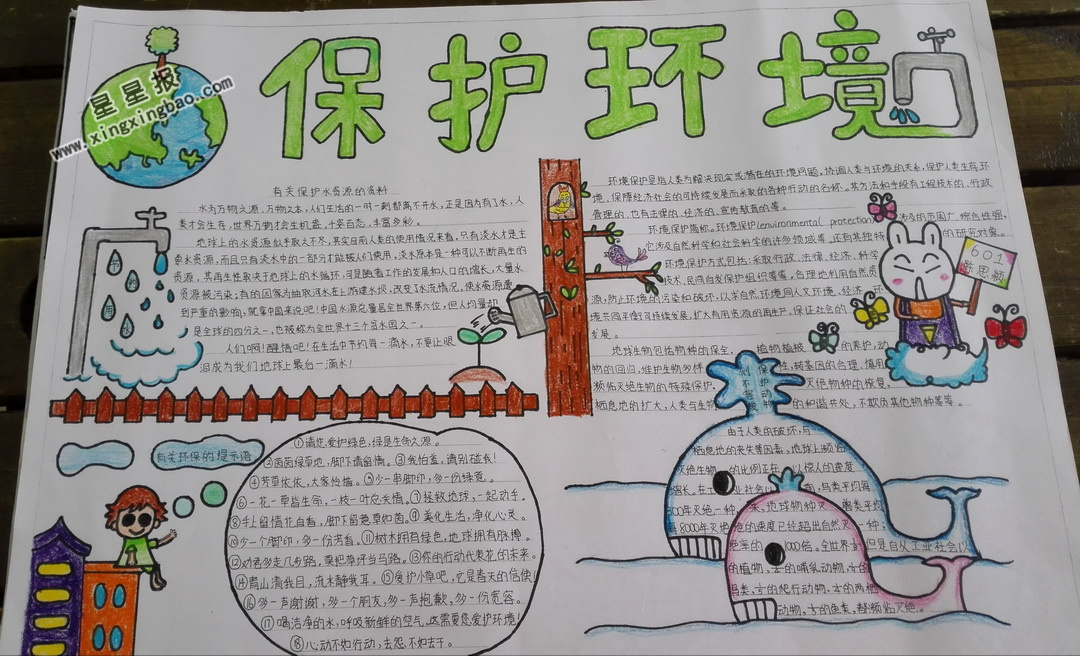 保护环境
星星报
www.xingxingbao.com
有关保护水资源的资料
水为万物之源,万物之本,人们生活的一时一刻都离不开水,正是因为有了水,人
类才会生存,世界万物才会生机盎然,千姿百态,丰富多彩。
地球上的水资源似乎取之不尽,其实自用人类的使用情况来看,只有淡水才是主
要水资源,而且只有淡水中的一部分才能被人们使用,淡水原本是一种可以不断再生的
资源,其再生性取决于地球上的水循环,可是随着工作的发展和人口的增长,大量水
资源被污染;有的国家为抽取河水在上游建水坝,改变了水流情况,使水资源遭
到严重的影响,就拿中国来说吧!中国水源总量居全世界第六位,但人均量却
是全球的四分之一,也被称为全世界十三个贫水国之一。
人们啊!醒悟吧!在生活中节约每一滴水,不要让眼
泪成为我们地球上最后一滴水!
环境保护是指人类为解决现实或潜在的环境问题,协调人类与环境的关系,保护人类生存环
境、保障经济社会的可持续发展而采取的各种行动的名称。其方法和手段有工程技术的、行政
管理的,也有法律的、经济的、宣传教育的等。
环境保护简称,环境保护(environmental protection)涉及的范围广、综合性强,
它涉及自然科学和社会科学的许多领域等,还有其独特的研究对象。
环境保护方式包括:采取行政、法律、经济、科学
技术,民间自发保护组织等等,合理地利用自然资
源,防止环境的污染和破坏,以求自然环境同人文环境、经济环
境共同平衡可持续发展,扩大有用资源的再生产,保证社会的
发展。
地球生物包括物种的保全,植物植被的养护,动
物的回归,维护生物多样性,转基因的合理、慎用
濒临灭绝生物的特殊保护,灭绝物种的恢复,
栖息地的扩大,人类与生物的和谐共处,不欺负其他物种等等。
601
有关环保的提示语
①请您爱护绿色,绿是生命之源。
②茵茵绿草地,脚下请留情。③我怕羞,请别碰我!
④芳草依依,大家怜惜。⑤少一串脚印,多一份绿意。
⑥一花一草皆生命,一枝一叶总关情。⑦拯救地球,一起动手。
⑧手上留情花自香,脚下留意草如茵。⑨美化生活,净化心灵。
⑩少一个脚印,多一份芳香。⑪树木拥有绿色,地球拥有脉搏。
⑫劝君多走几步路,莫把草坪当马路。⑬你的行动代表花的未来。
⑭青山清我目,流水静我耳。⑮爱护小草吧,它是春天的信使!
⑯多一声谢谢,多一个朋友,多一声抱歉,多一份宽容。
⑰喝洁净的水,呼吸新鲜的空气,这需要您爱护环境!
⑱心动不如行动,去怨不如去干。
保护动物
别不
由于人类的破坏,与
栖息地的丧失等因素,地球上濒临
灭绝生物的比例正在以惊人的速度
增长。在工业社会以前,鸟类平均每
300年灭绝一种,兽类平均
每8000年灭绝
的速度已经超出自然灭
1000倍,全世界
但是自从工业社会
的植物,的哺乳动物,
鸟类,的爬行动物,的两栖
动物,的鱼类,都濒临灭绝。